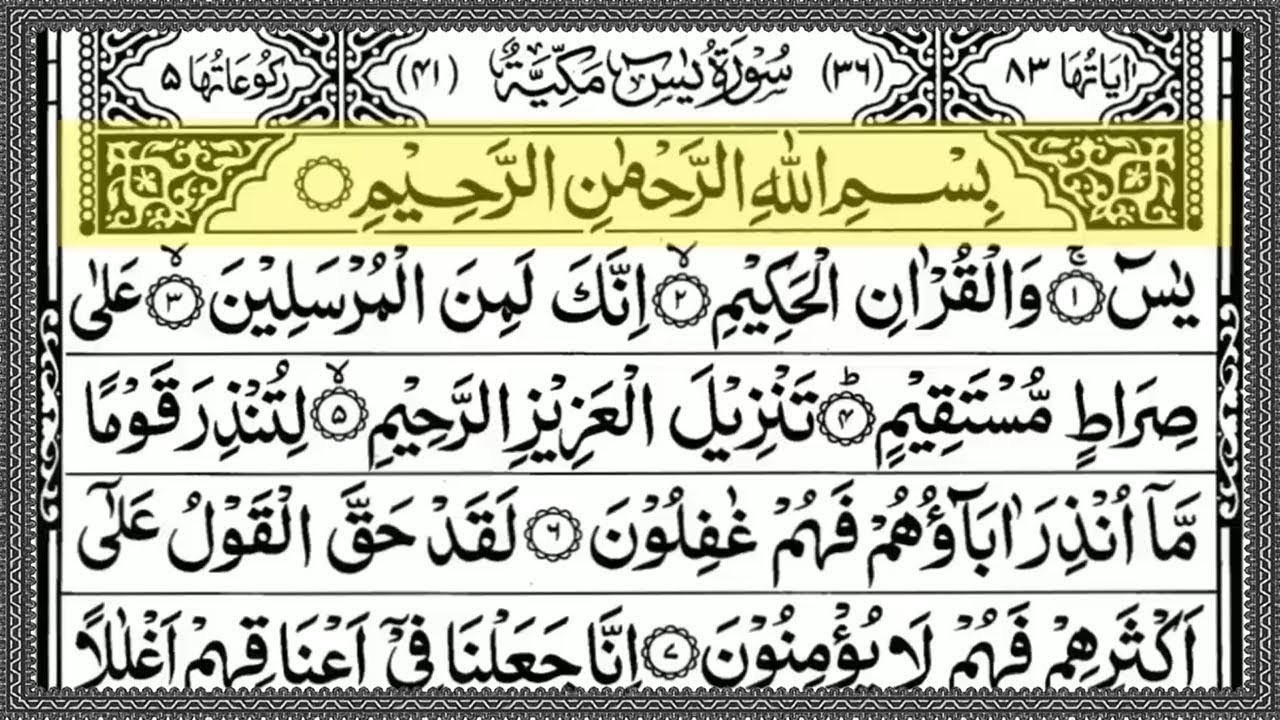 اٰیَاتُهَا ۸۳ (۳۶) سُوْرَةُ یٰسٓ مَكِّیَّةٌ (۴۱) رُكُوْعَاتُهَا ۵
بِسْمِ اللّٰهِ الرَّحْمٰنِ الرَّحِیْمِ
یٰسٓ ۚ‏﴿۱﴾ وَالْقُرْاٰنِ الْحَكِیْمِ ۙ‏﴿۲﴾ اِنَّكَ لَمِنَ الْمُرْسَلِیْنَ ۙ‏﴿۳﴾ عَلٰی
صِرَاطٍ مُّسْتَقِیْمٍ ؕ‏﴿۴﴾ تَنْزِیْلَ الْعَزِیْزِ الرَّحِیْمِ ۙ‏﴿۵﴾ لِتُنْذِرَ قَوْمًا
مَّاۤ اُنْذِرَ اٰبَآؤُهُمْ فَهُمْ غٰفِلُوْنَ ﴿۶﴾ لَقَدْ حَقَّ الْقَوْلُ عَلٰۤی
اَكْثَرِهِمْ فَهُمْ لَا یُؤْمِنُوْنَ ﴿۷﴾ اِنَّا جَعَلْنَا فِیْۤ اَعْنَاقِهِمْ اَغْلٰلًا